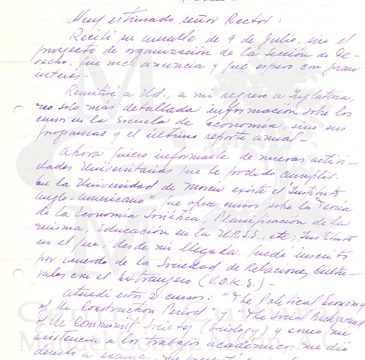 Muy estimado señor Rector:
Recibí su amable de 9 de Julio, con el
proyecto de organización de la Sección de De-
recho, que me anuncia y que espero con gran
interés.-
Remitiré a Ud., a mi regreso a Inglaterra,
no solo más detallada información sobre los
cursos en la Escuela de Economía, sino sus
programas y el último reporte anual.-
Ahora quiero informarle de nuevas activi-
dades Universitarias que he podido cumplir.
En la Universidad de Moscú existe el "Instituto
Anglo-Americano" que ofrece cursos sobre la "Teoría
de la Economía Soviética", Planificación de la
misma, Educación en la U.R.S.S., etc, Instituto
en el que, desde mi llegada, quedé inscrito
por acuerdo de la Sociedad de Relaciones Cultu-
rales con el extranjero (V.O.K.S.)-
Atendí estos 2 cursos: "The Political Economy
of the Construction Period" - "The Social Background
of the Communist Society (Sociology) y como mi
asistencia a los trabajos académicos me dió
derecho a